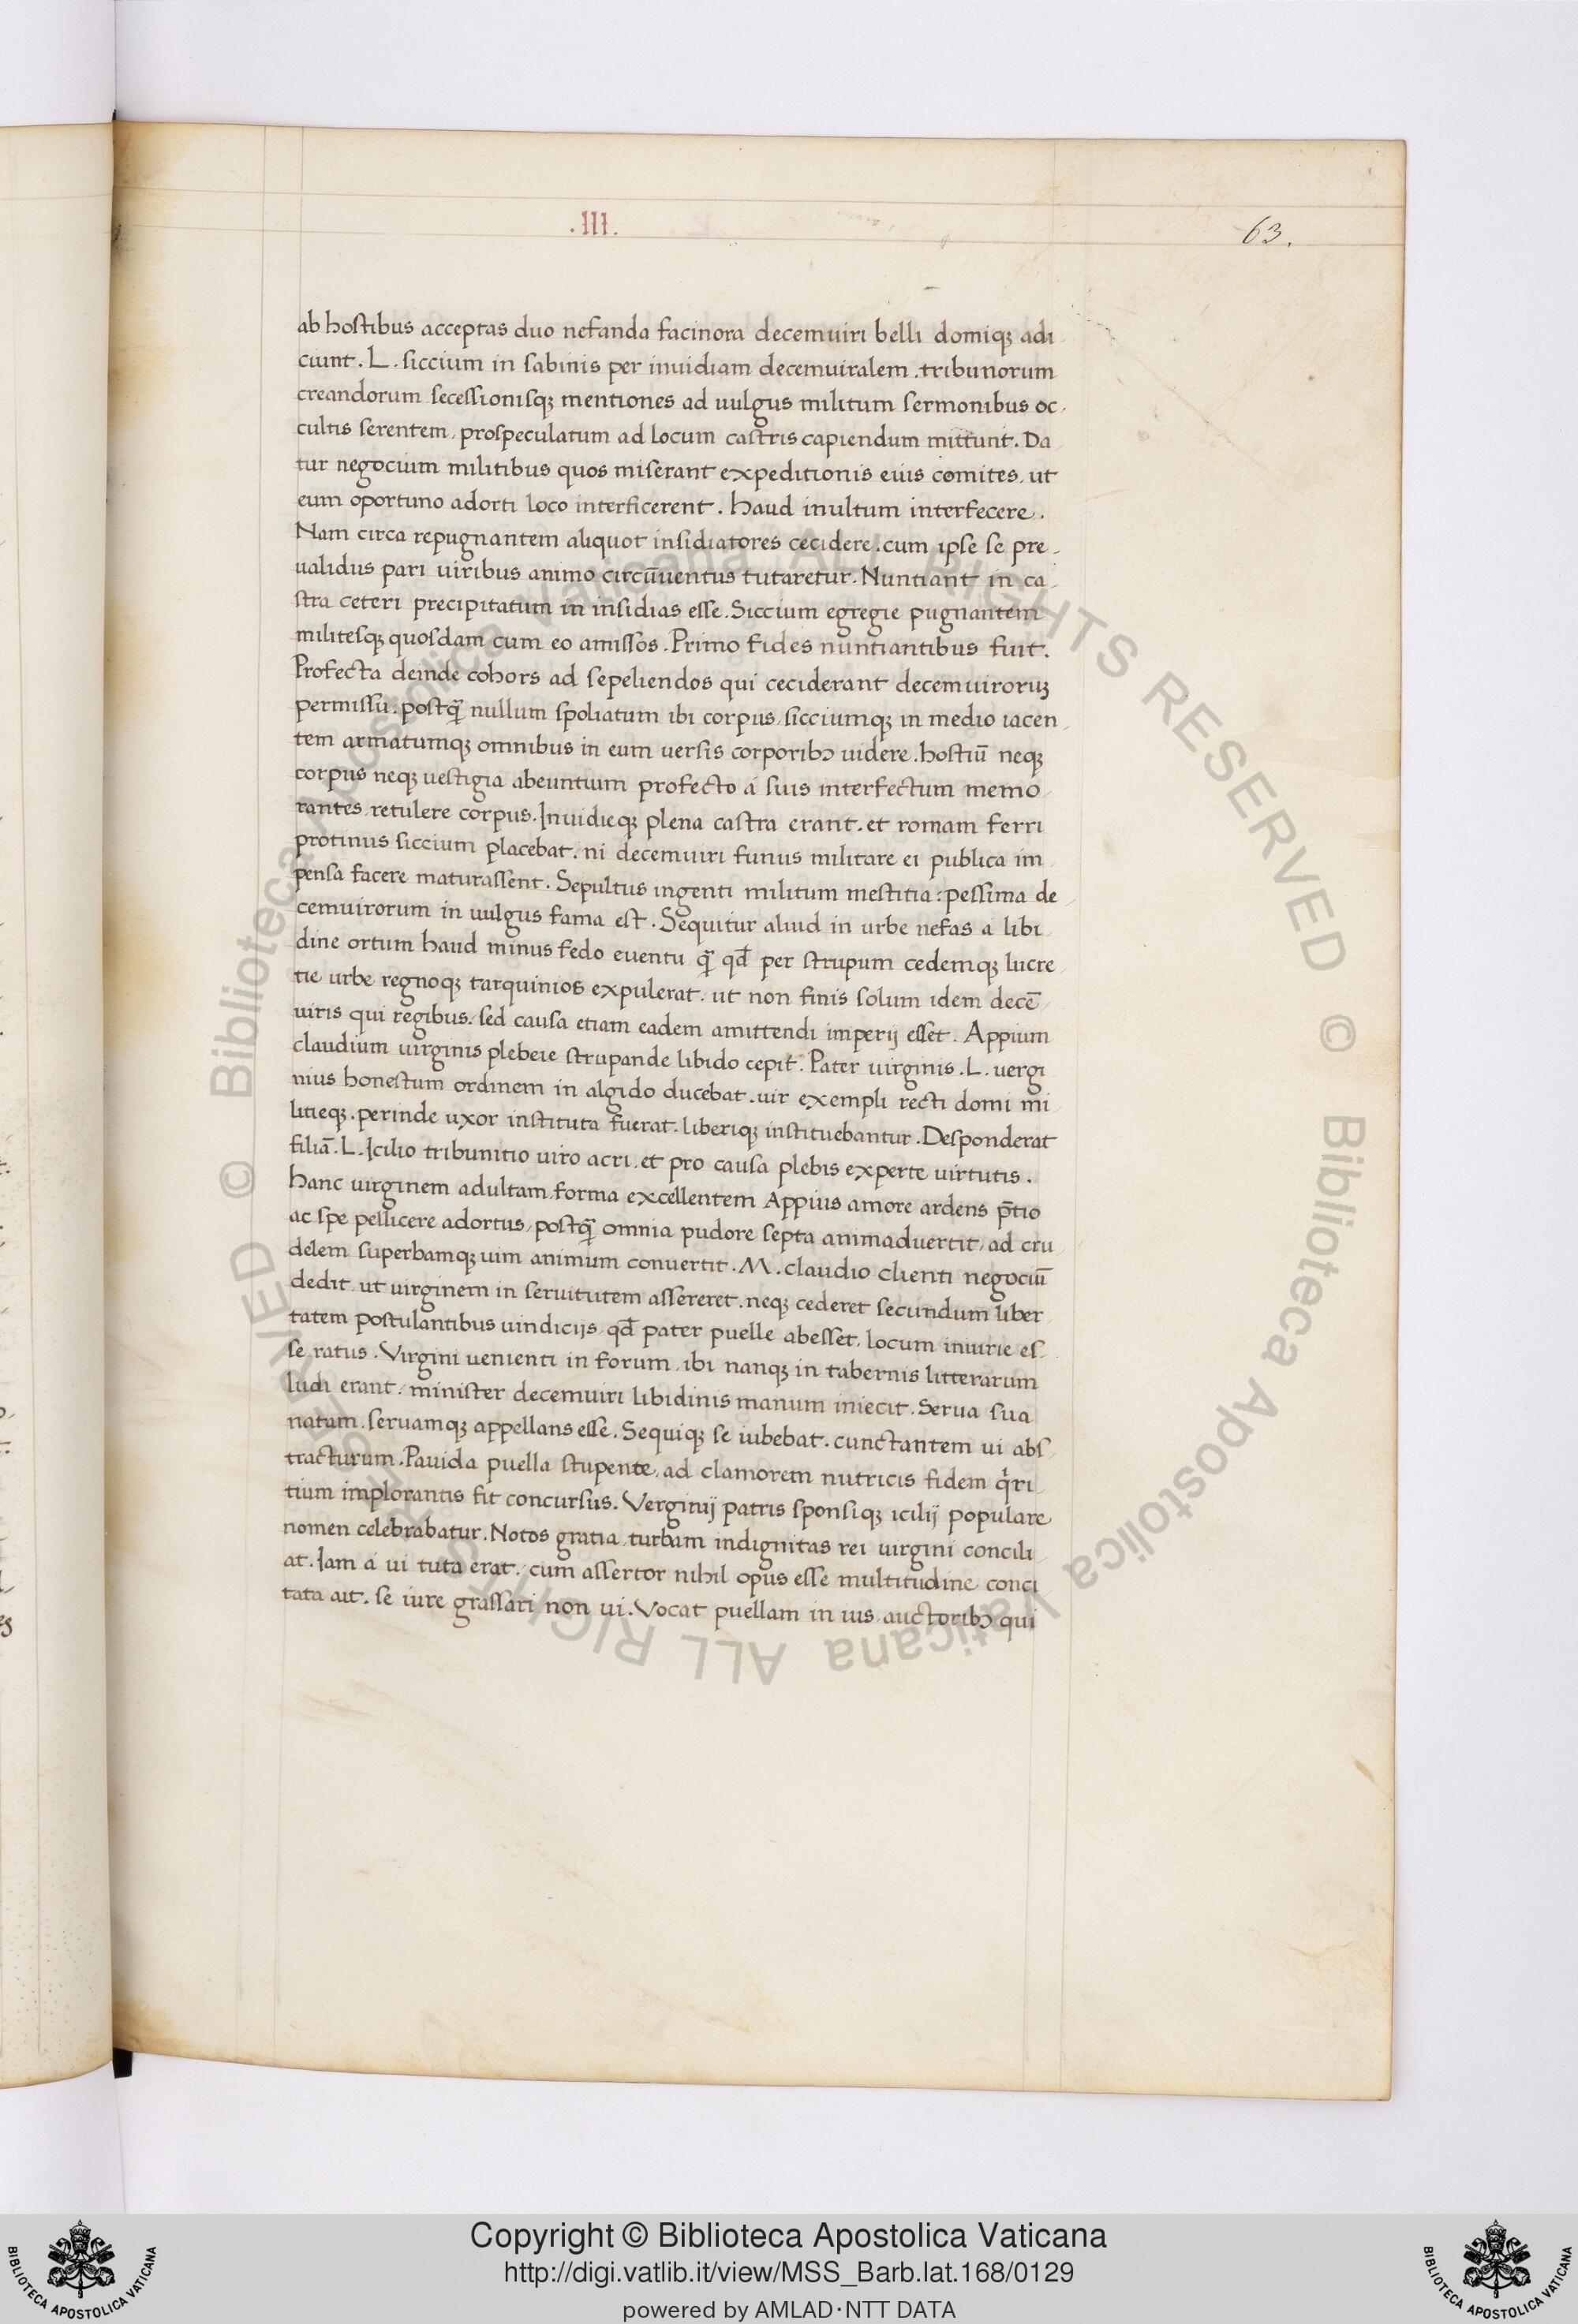 .III.
63.
ab hostibus acceptas duo nefanda facinora decemuiri belli domiqꝫ adi
ciunt. L. siccium in sabinis per inuidiam decemuiralem. tribunorum
creandorum secessionisqꝫ mentiones ad uulgus militum sermonibus oc-
cultis serentem, prospeculatum ad locum castris capiendum mittunt. Da
tur negocium militibus quos miserant expeditionis eius comites, ut
eum oportuno adorti loco interficerent. haud inultum interfecere.
Nam circa repugnantem aliquot insidiatores cecidere. cum ipse se pre-
ualidus pari uiribus animo circūuentus tutaretur. Nuntiant in ca-
stra ceteri precipitatum in insidias esse. Siccium egregie pugnantem
militesqꝫ quosdam cum eo amissos. Primo fides nuntiantibus fuit.
Profecta deinde cohors ad sepeliendos qui ceciderant decemuiroruꝫ
permissu. postq̄ nullum spoliatum ibi corpus, sicciumqꝫ in medio iacen-
tem armatumqꝫ omnibus in eum uersis corporibꝰ uidere. hostiū neqꝫ
corpus neqꝫ uestigia abeuntium profecto a suis interfectum memo
rantes, retulere corpus. Inuidieqꝫ plena castra erant. et romam ferri
protinus siccium placebat. ni decemuiri funus militare ei publica im
pensa facere maturassent. Sepultus ingenti militum mestitia: pessima de
cemuirorum in uulgus fama est. Sequitur aliud in urbe nefas a libi
dine ortum haud minus fedo euentu q̄ qđ per strupum cedemqꝫ lucre
tie urbe regnoqꝫ tarquinios expulerat. ut non finis solum idem decē
uiris qui regibus. sed causa etiam eadem amittendi imperij esset. Appium
claudium uirginis plebeie strupande libido cepit. Pater uirginis. L. uergi
nius honestum ordinem in algido ducebat. uir exempli recti domi mi
litieqꝫ. perinde uxor instituta fuerat. liberiqꝫ instituebantur. Desponderat
filiā. L. Icilio tribunitio uiro acri. et pro causa plebis experte uirtutis.
hanc uirginem adultam, forma excellentem Appius amore ardens p̄tio
ac spe pellicere adortus, postq̄ omnia pudore septa animaduertit, ad cru
delem superbamqꝫ uim animum conuertit. M. claudio clienti negociū
dedit, ut uirginem in seruitutem assereret. neqꝫ cederet secundum liber
tatem postulantibus uindicijs, qđ pater puelle abesset, locum iniurie es-
se ratus. Virgini uenienti in forum, ibi nanqꝫ in tabernis litterarum
ludi erant. minister decemuiri libidinis manum iniecit. Serua sua
natam. seruamqꝫ appellans esse. Sequiqꝫ se iubebat. cunctantem ui abs
tracturum. Pauida puella stupente, ad clamorem nutricis fidem q̇ri
tium implorantis fit concursus. Verginij patris sponsiqꝫ icilij populare
nomen celebrabatur. Notos gratia, turbam indignitas rei uirgini concili
at. Iam a ui tuta erat. cum assertor nihil opus esse multitudine conci
tata ait. se iure grassari non ui. Vocat puellam in ius auctoribꝰ qui
Copyright © Biblioteca Apostolica Vaticana
http://digi.vatlib.it/view/MSS_Barb.lat.168/0129
powered by AMLAD·NTT DATA